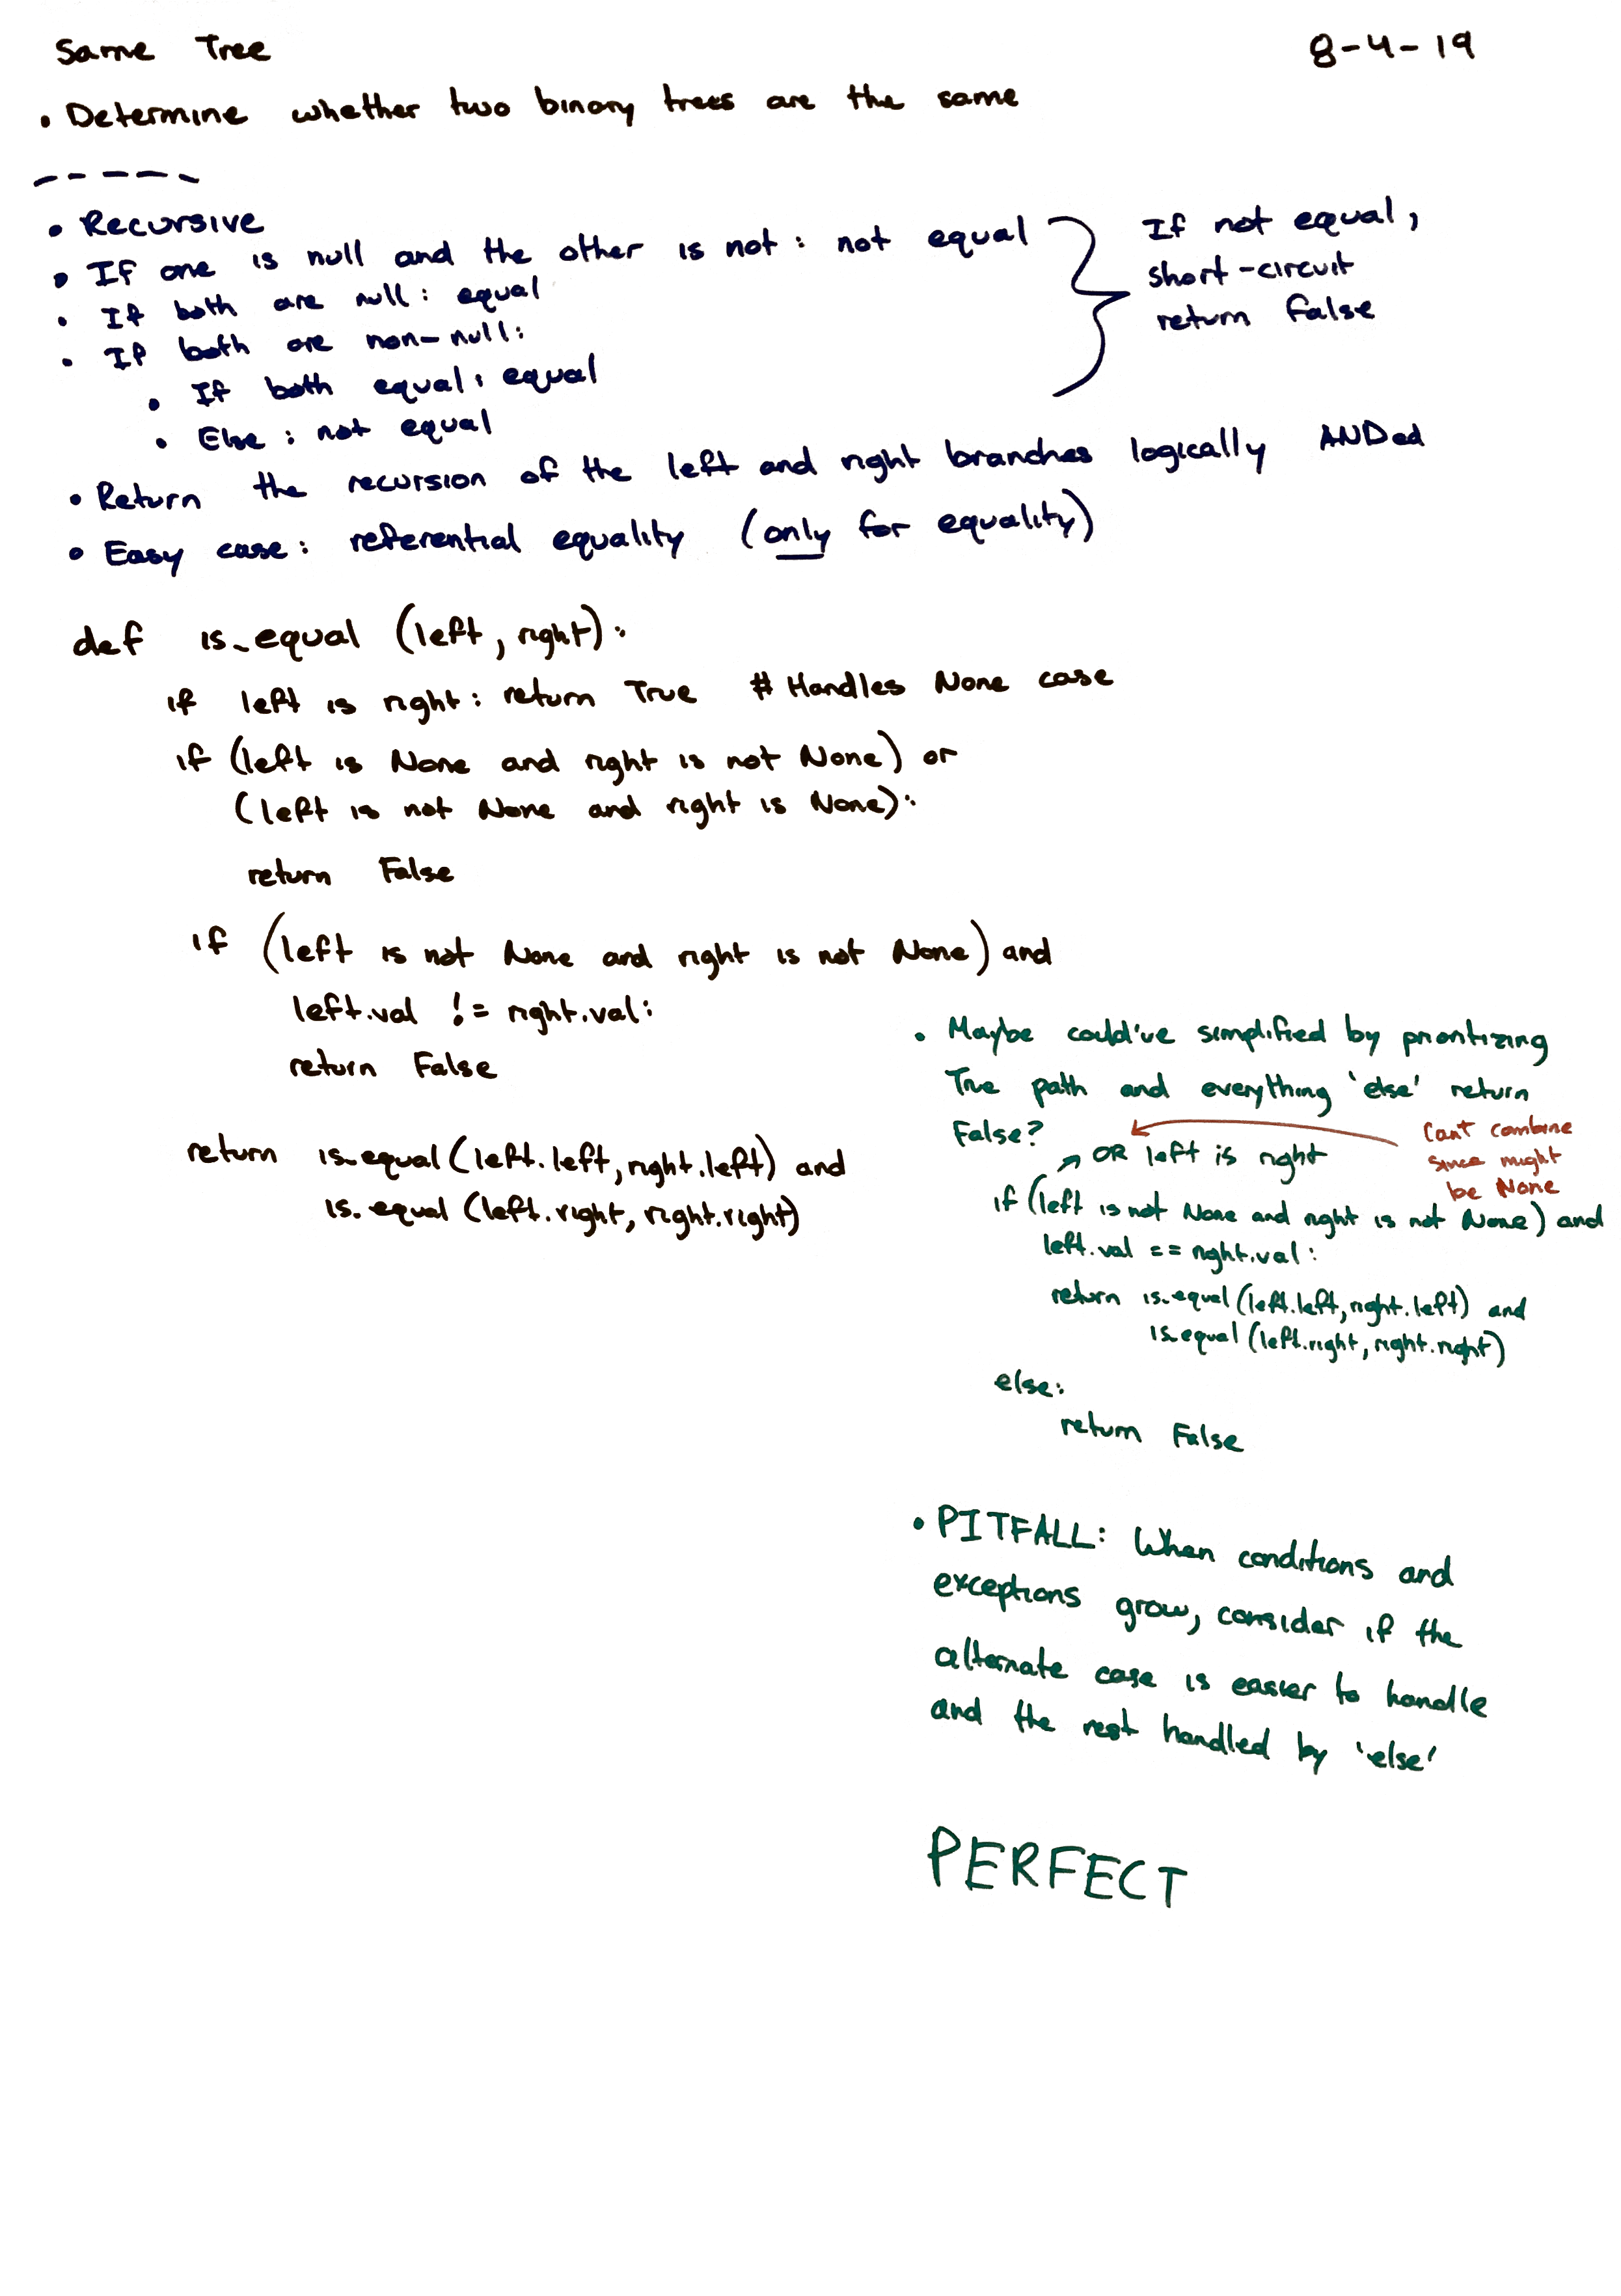 Same Tree
8-4-19
• Determine whether two binary trees are the same
-----
• Recursive
• If one is null and the other is not: not equal
• If both are null: equal
• If both are non-null:
• If both equal: equal
• Else: not equal
If not equal,
short-circuit
return False
• Return the recursion of the left and right branches logically ANDed
• Easy case: referential equality (only for equality)
def is_equal (left, right):
if left is right: return True # Handles None case
if (left is None and right is not None) or
(left is not None and right is None):
return False
if (left is not None and right is not None) and
left.val != right.val:
return False
return is_equal(left.left, right.left) and
is_equal (left.right, right.right)
• Maybe could've simplified by prioritizing
True path and everything 'else' return
False?
OR left is right
Can't combine
since might
be None
if (left is not None and right is not None) and
left.val == right.val:
return is_equal (left.left, right.left) and
is_equal (left.right, right.right)
else:
return False
• PITFALL: When conditions and
exceptions grow, consider if the
alternate case is easier to handle
and the rest handled by 'else'
PERFECT